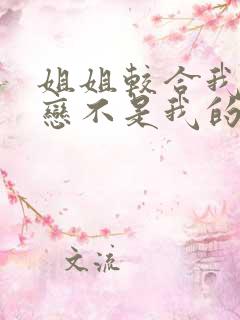 姐姐較合我
戀不是我的
文流